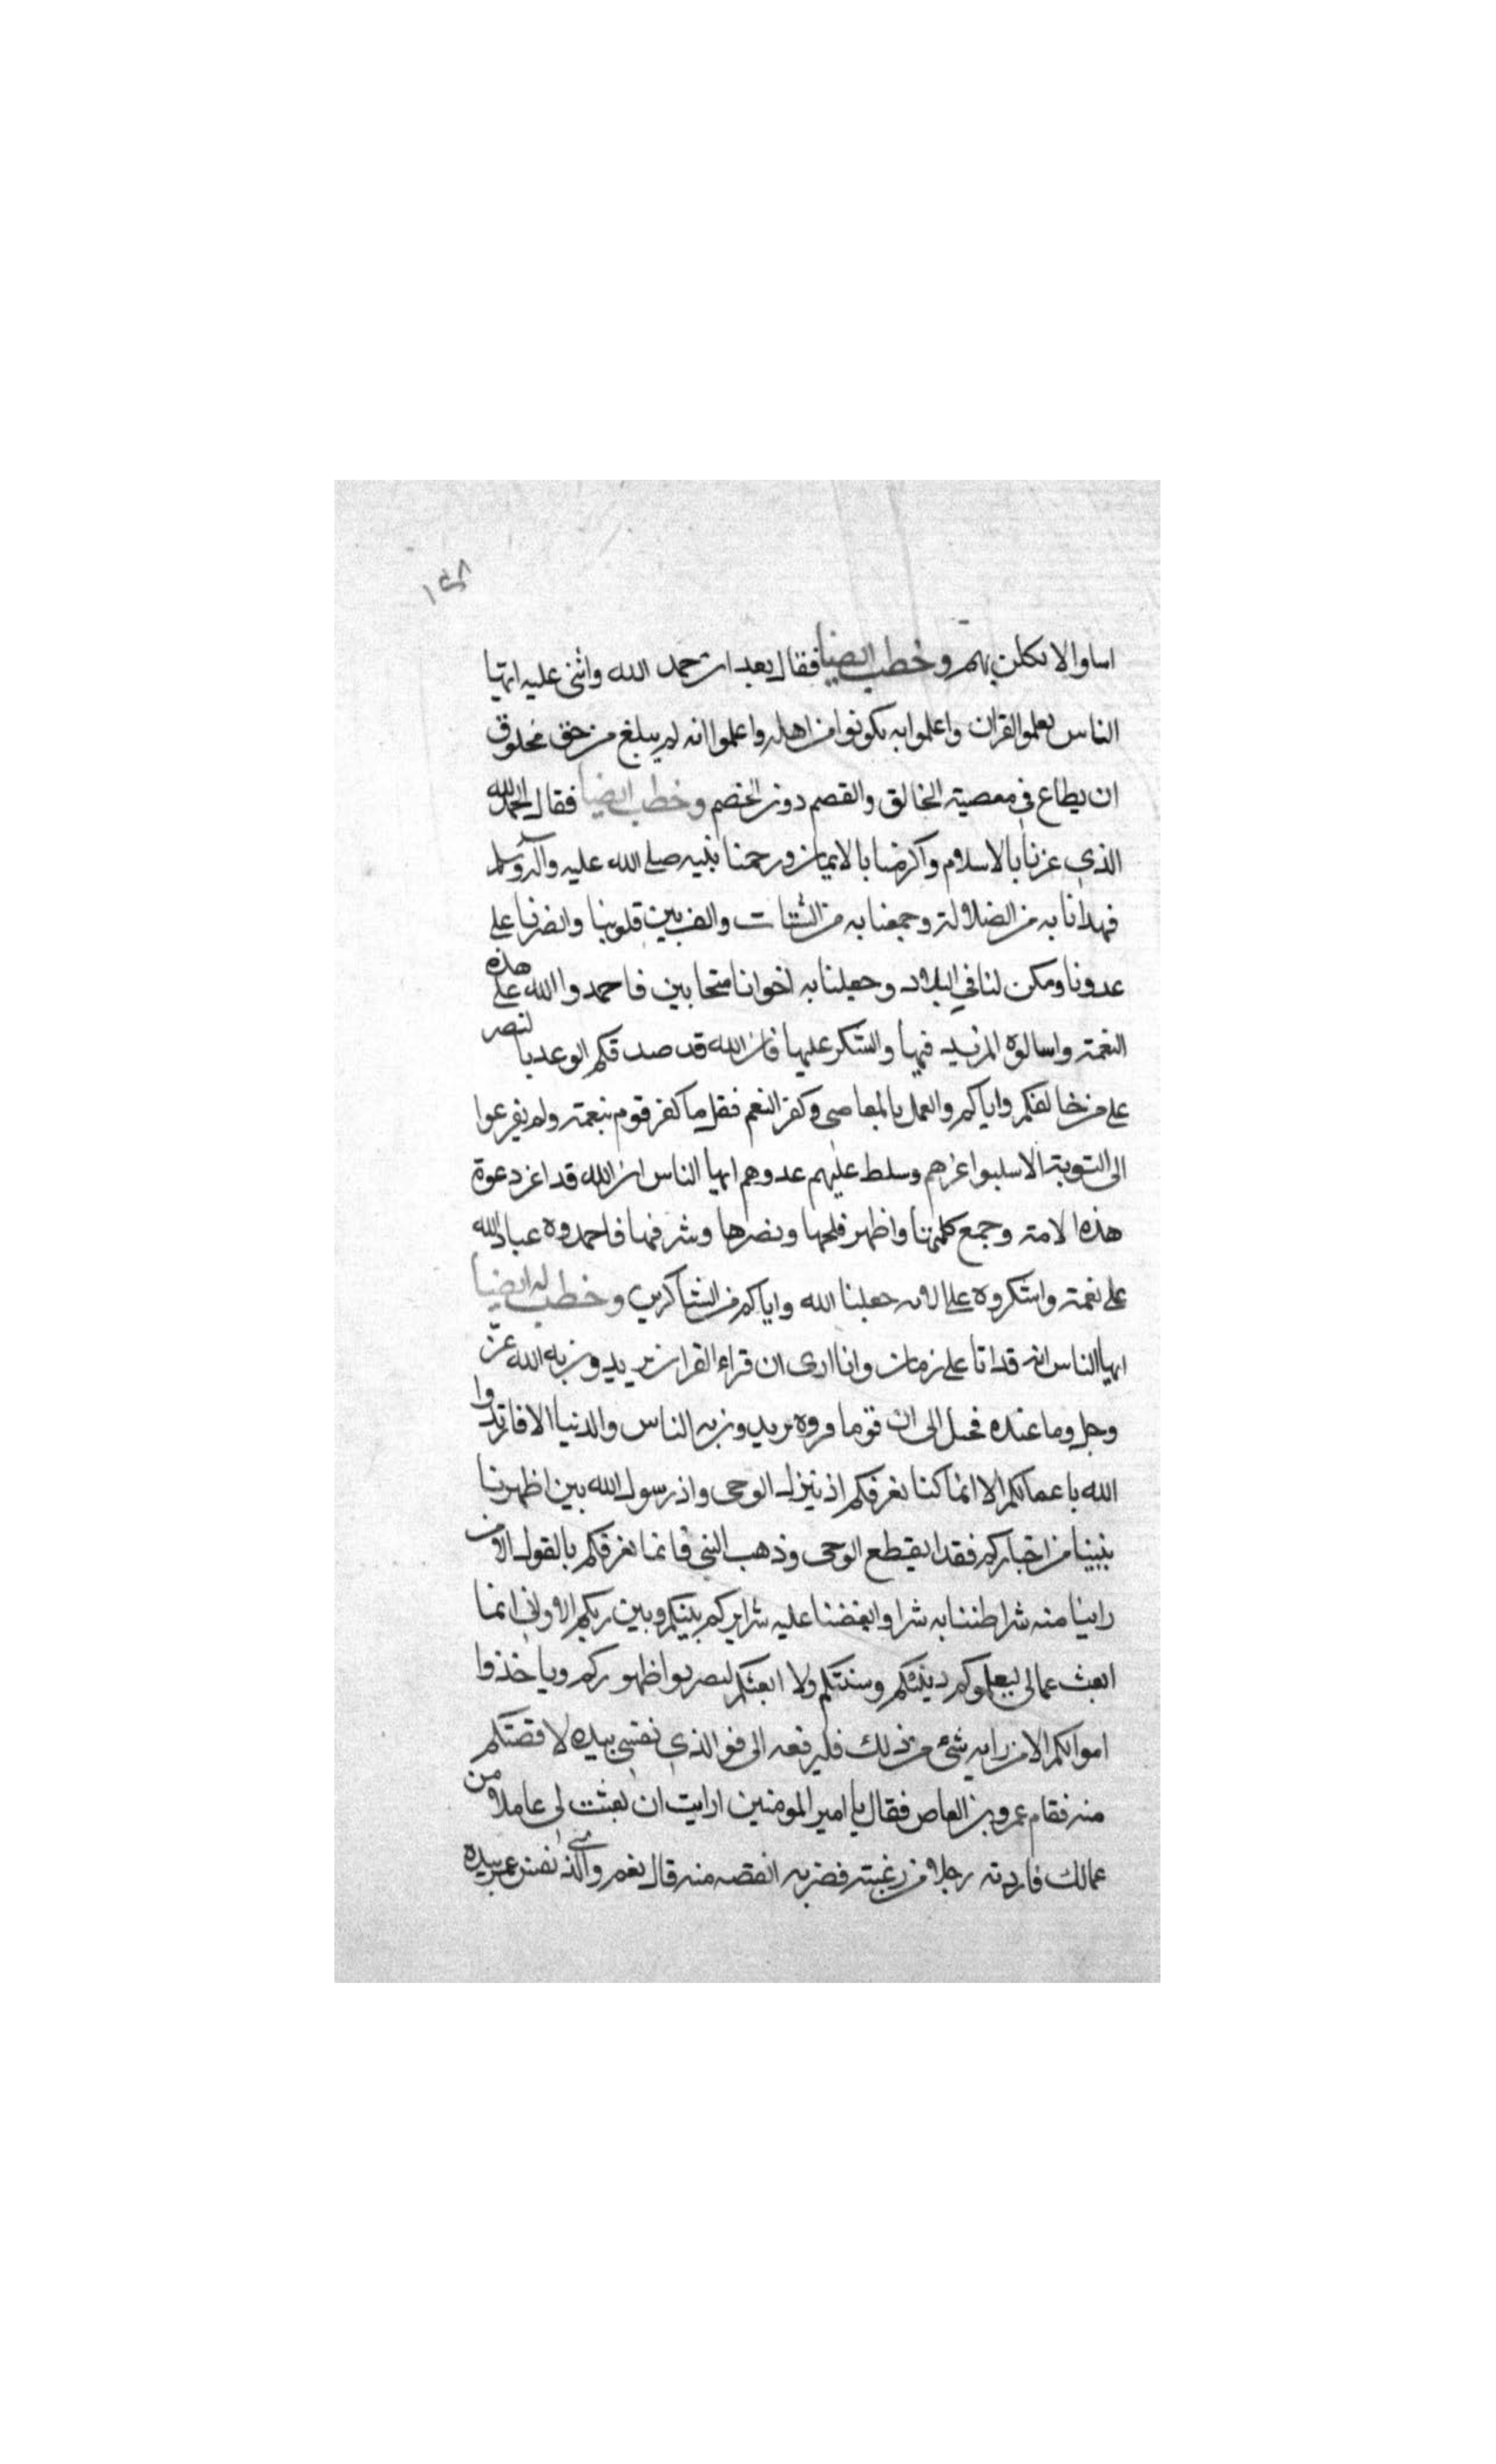 ١٤٨
اساوا لانكلن بهم وخطب ايضيا فقال بعد ان حمد الله واثنى عليه ايها
الناس تعلموا القران واعلموا به تكونوا من اهله واعلموا انه لم يبلغ من حق مخلوق
ان يطاع في معصية الخالق والقصم دون الخصم وخطب ايضيا فقال الحمد لله
الذي عزنا بالاسلام واكرمنا بالايمان ورحمنا بنبيه صلى الله عليه وآله وسلم
فهدانا به من الضلالة وجمعنا به من الشتات والف بين قلوبنا وانصرنا على
عدونا ومكن لنا في البلاد وجعلنا به اخوانا متحابين فاحمدوا الله على هذه
النعمة واسالوه المزيد فيها والشكر عليها فان الله قد صدقكم الوعد بالنصر
على من خالفكم واياكم والعمل بالمعاصي وكفر النعم فقل ما كفر قوم بنعمة ولم يفرعوا
الى التوبة الا سلبوا عزهم وسلط عليهم عدوهم ايها الناس ان الله قد اعز دعوة
هذه الامة وجمع كلمتها واظهر فلجها ونصرها وشرفها فاحمدوه عباد الله
على نعمة واشكروه على الائه جعلنا الله واياكم من الشاكرين وخطب له ايضيا
ايها الناس انه قد اتا على زمان وانا ارى ان قراء القران يريدون به الله عز
وجل وما عنده فخيل الى ان قوما قروه يريدون به الناس والدنيا الا فاتردوا
الله باعمالكم الا انما كنا نعرفكم اذ ينزل الوحى واذ رسول الله بين اظهرنا
ينبينا من اخباركم فقد انقطع الوحى وذهب النبي فانما نعرفكم بالقول الا من
راينا منه شرا ظننا به شرا وابغضنا عليه شرايركم بينكم وبين ربكم الا واني انما
ابعث عمالى ليعلموكم دينكم وسنتكم ولا ابعثكم ليضربوا ظهوركم وياخذوا
اموالكم الا من رابه شئ من ذلك فليرفعه الى فو الذي نفسي بيده لاقصتكم
منه فقام عمرو بن العاص فقال يا امير المومنين ارايت ان بعثت لى عاملا من
عمالك فاردته رجلا من رغبته فضربه اتقصه منه قال نعم والذي نفس عمر بيده